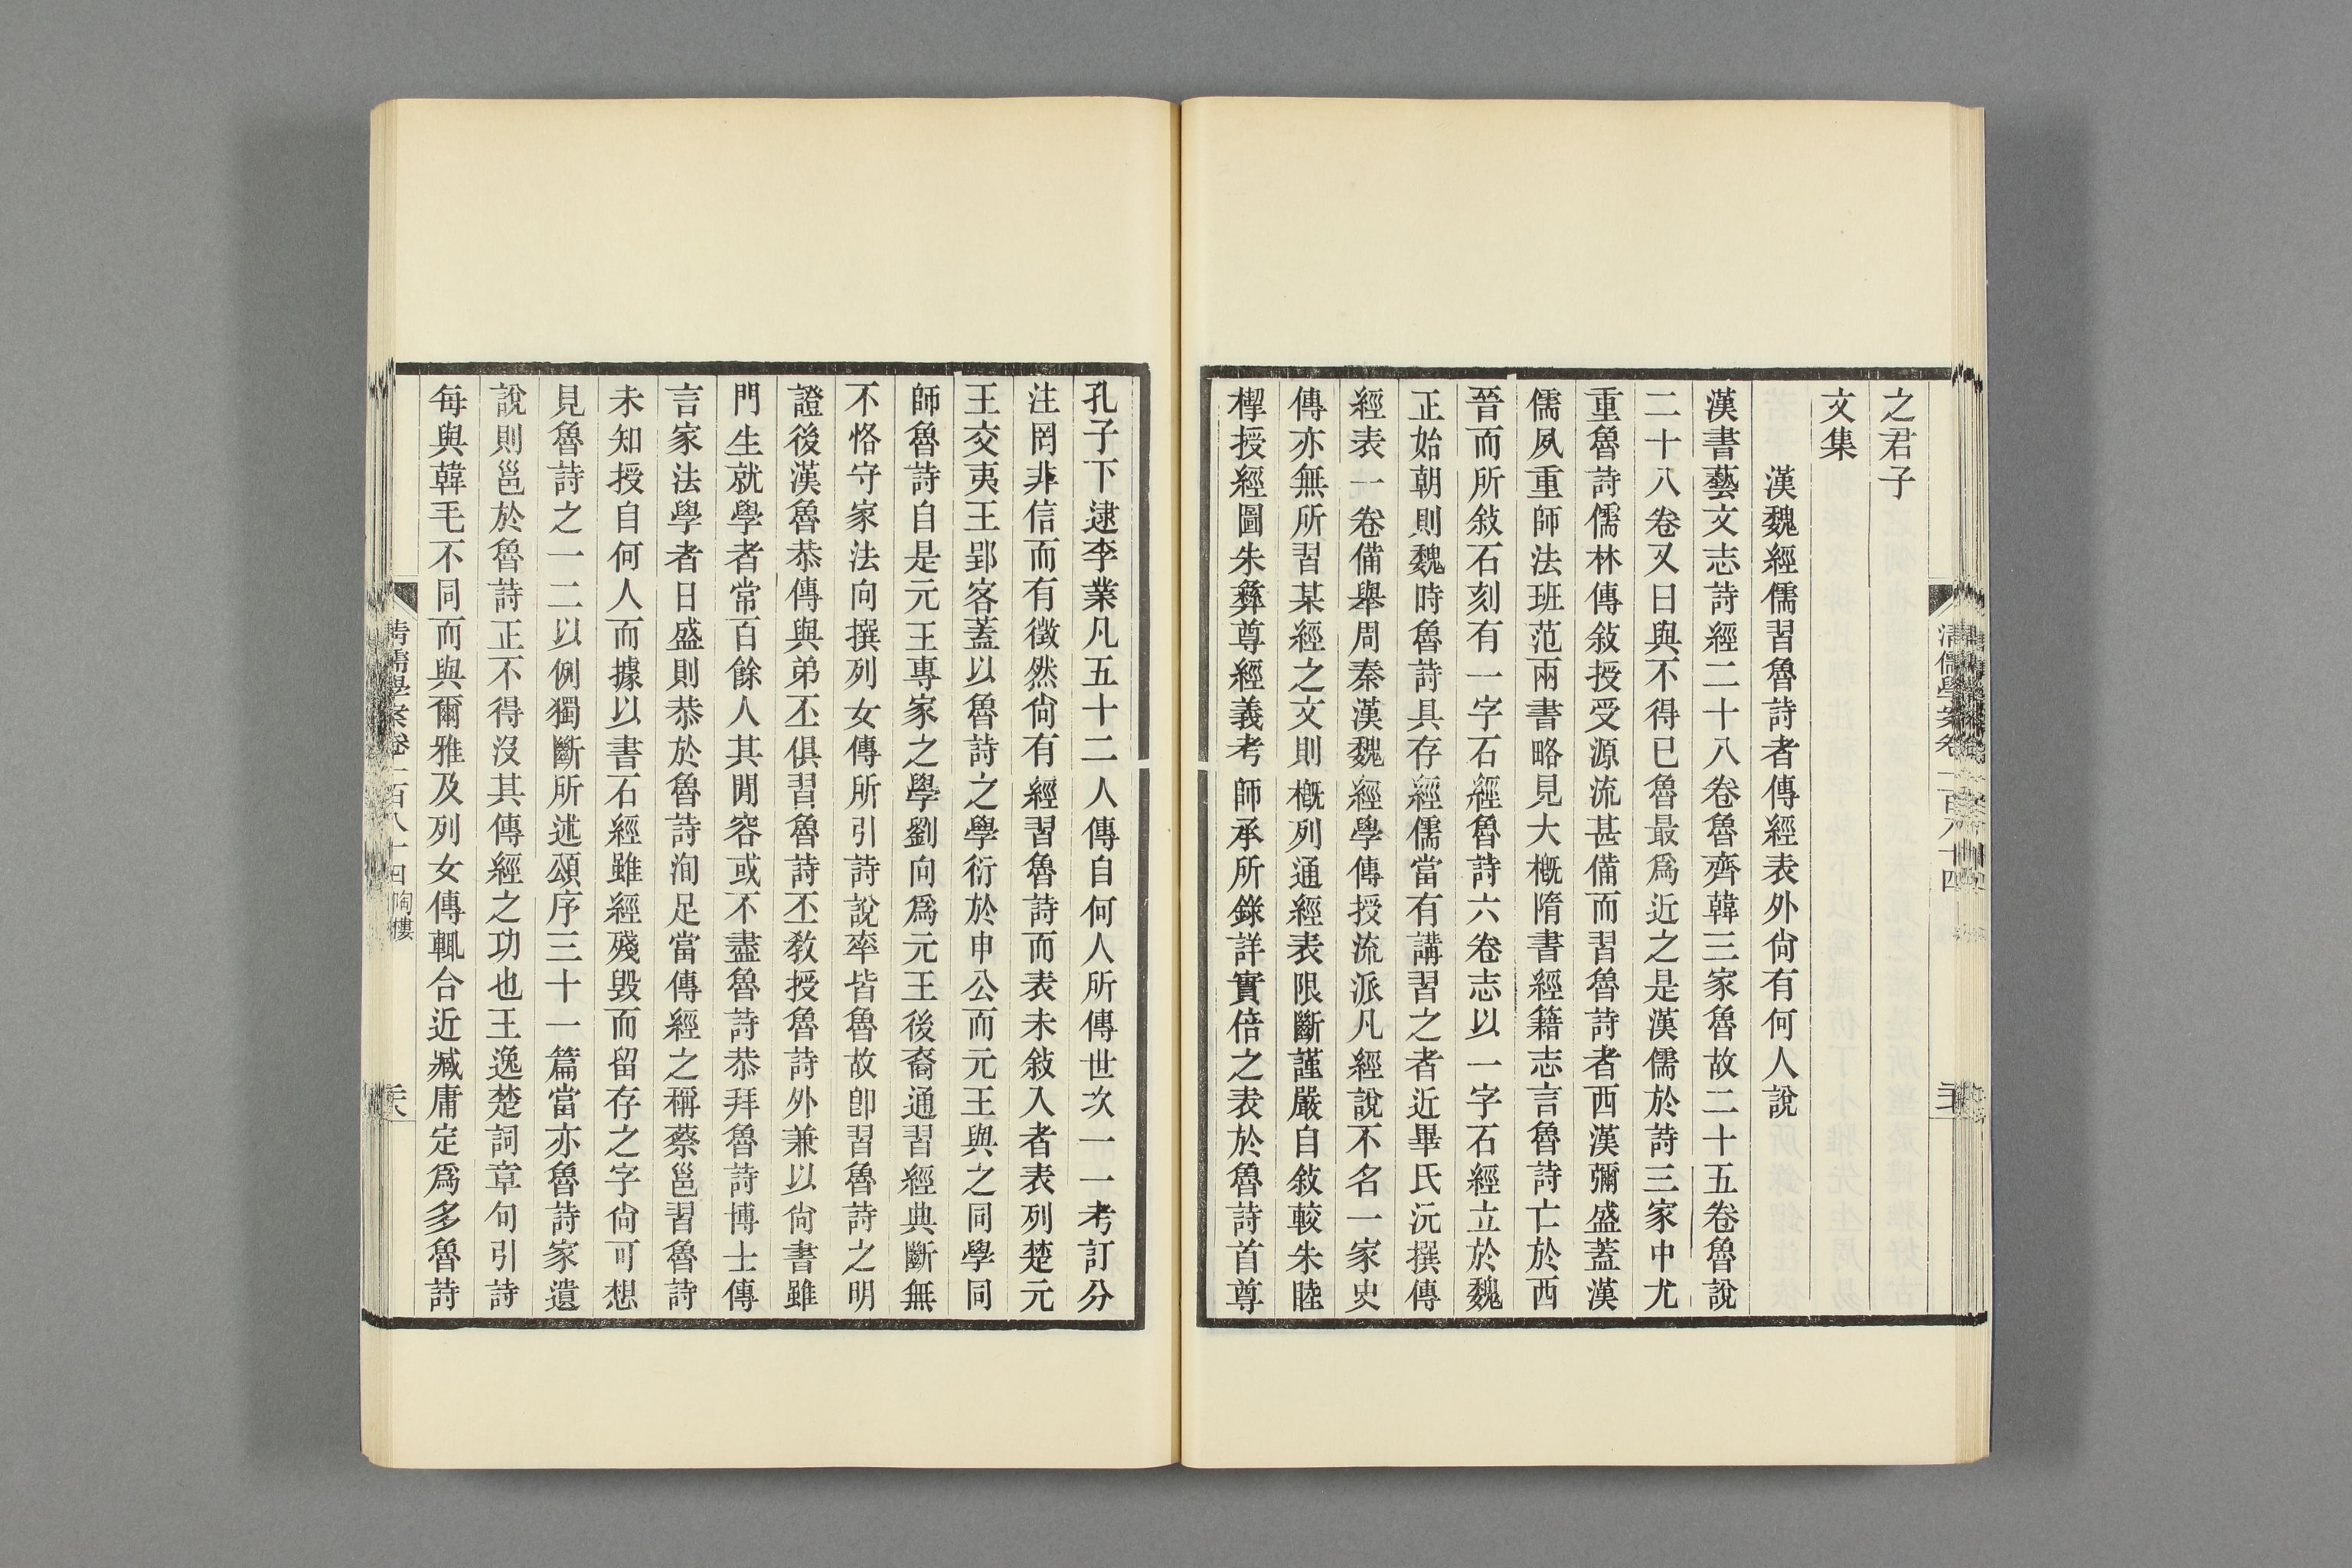 之君子
文集
漢魏經儒習魯詩者傳經表外尙有何人說
漢書藝文志詩經二十八卷魯齊韓三家魯故二十五卷魯說
二十八卷又曰與不得已魯最爲近之是漢儒於詩三家中尤
重魯詩儒林傳敍授受源流甚備而習魯詩者西漢彌盛蓋漢
儒夙重師法班范兩書略見大槪隋書經籍志言魯詩亡於西
晉而所敍石刻有一字石經魯詩六卷志以一字石經立於魏
正始朝則魏時魯詩具存經儒當有講習之者近畢氏沅撰傳
經表一卷備舉周秦漢魏經學傳授流派凡經說不名一家史
傳亦無所習某經之文則槪列通經表限斷謹嚴自敍較朱睦
㮮授經圖朱彝尊經義考師承所錄詳實倍之表於魯詩首尊
孔子下逮李業凡五十二人傳自何人所傳世次一一考訂分
注罔非信而有徵然尙有經習魯詩而表未敍入者表列楚元
王交夷王郢客蓋以魯詩之學衍於申公而元王與之同學同
師魯詩自是元王專家之學劉向爲元王後裔通習經典斷無
不恪守家法向撰列女傳所引詩說率皆魯故卽習魯詩之明
證後漢魯恭傳與弟丕俱習魯詩丕敎授魯詩外兼以尙書雖
門生就學者常百餘人其閒容或不盡魯詩恭拜魯詩博士傳
言家法學者日盛則恭於魯詩洵足當傳經之稱蔡邕習魯詩
未知授自何人而據以書石經雖經殘毀而留存之字尙可想
見魯詩之一二以例獨斷所述頌序三十一篇當亦魯詩家遺
說則邕於魯詩正不得沒其傳經之功也王逸楚詞章句引詩
每與韓毛不同而與爾雅及列女傳輒合近臧庸定爲多魯詩
淸儒學案卷一百八十四 陶樓